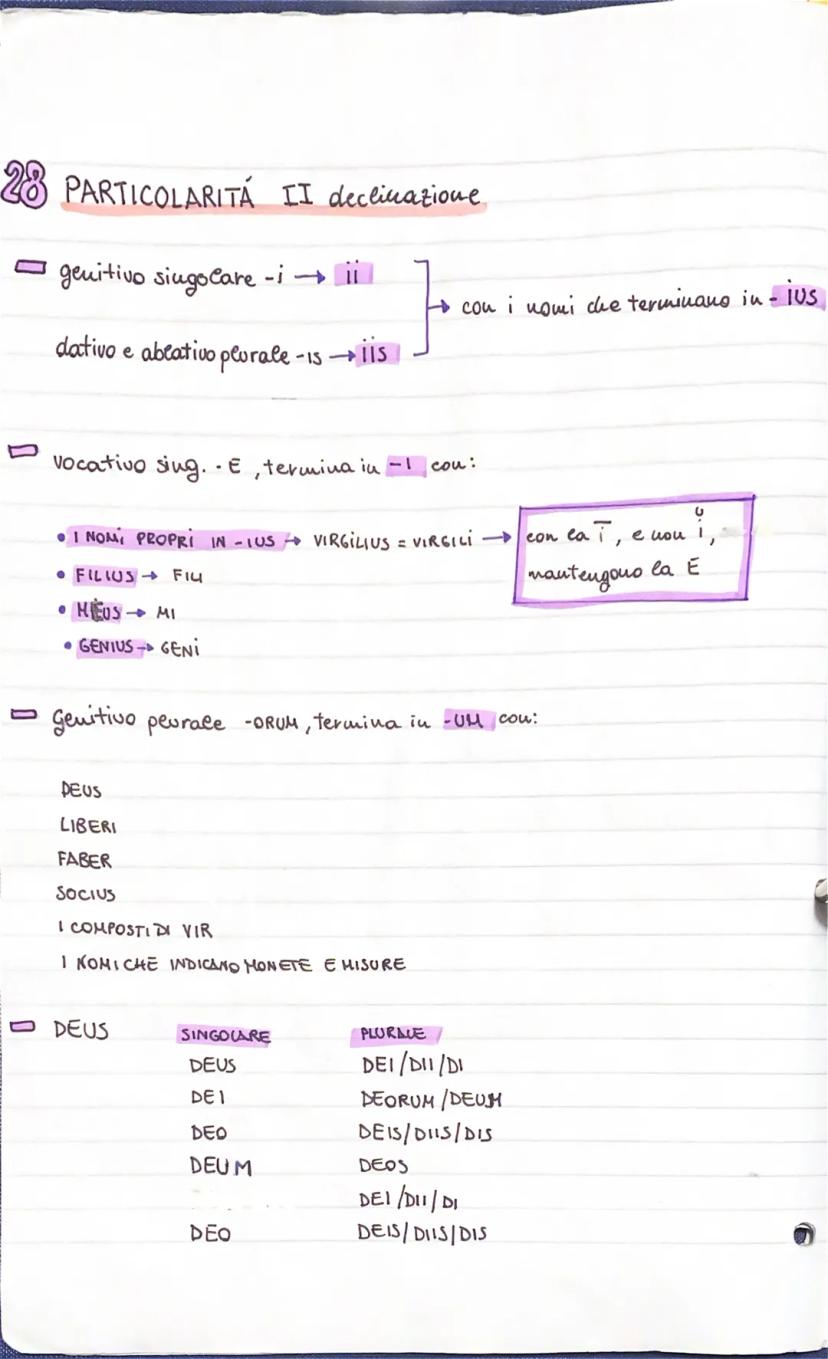 28 PARTICOLARITÁ II declinazione
genitivo singolare -i → ii
→ con i nomi che terminano in - ius
dativo e ablativo plurale -is → iis
vocativo sing. -E, termina in -I con:
• I NOMI PROPRI IN -IUS → VIRGILIUS = VIRGILI → con la ī, e non ĭ,
mantengono la E
• FILIUS → FILI
• MEUS → MI
• GENIUS → GENI
Genitivo plurale -ORUM, termina in -UM con:
DEUS
LIBERI
FABER
SOCIUS
I COMPOSTI DI VIR
I NOMI CHE INDICANO MONETE E MISURE
DEUS SINGOLARE PLURALE
DEUS DEI/DII/DI
DEI DEORUM/DEUM
DEO DEIS/DIIS/DIS
DEUM DEOS
DEI/DII/DI
DEO DEIS/DIIS/DIS